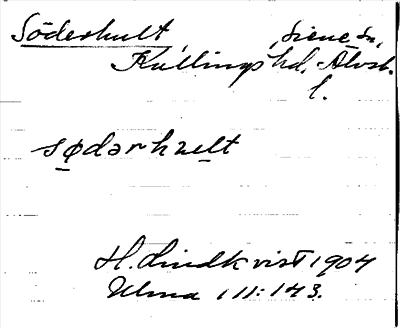 Söderhult, Siene sn,
Kullings hd, Älvsb.
l.
sødərhuelt
H. Lindkvist 1904
Ulma 111:143.